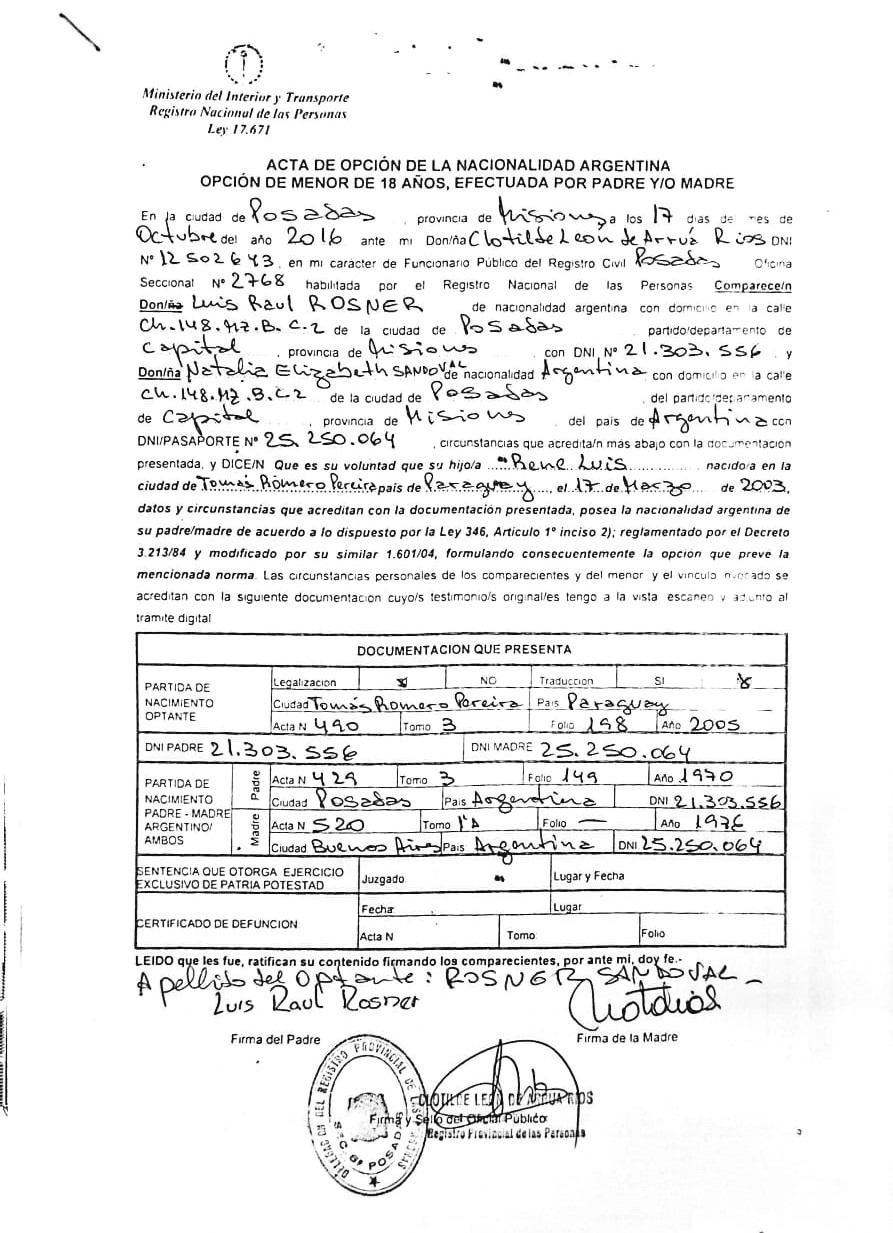 Ministerio del Interior y Transporte
Registro Nacional de las Personas
Ley 17.671
ACTA DE OPCIÓN DE LA NACIONALIDAD ARGENTINA
OPCIÓN DE MENOR DE 18 AÑOS, EFECTUADA POR PADRE Y/O MADRE
En la ciudad de Posadas, provincia de Misiones a los 17 días de mes de
Octubre del año 2016 ante mi Don/ña Clotilde León de Arrúa Rios DNI
N° 12502643, en mi carácter de Funcionario Público del Registro Civil Posadas Oficina
Seccional N° 2768 habilitada por el Registro Nacional de las Personas Comparece/n
Don/ña Luis Raul ROSNER de nacionalidad argentina con domicilio en la calle
Ch.148.Mz.B.C-2 de la ciudad de Posadas partido/departamento de
Capital, provincia de Misiones con DNI N° 21.303.556 y
Don/ña Natalia Elizabeth SANDOVAL de nacionalidad Argentina con domicilio en la calle
Ch.148.Mz.B.C-2 de la ciudad de Posadas, del partido/departamento
de Capital, provincia de Misiones, del país de Argentina con
DNI/PASAPORTE N° 25.250.064, circunstancias que acredita/n más abajo con la documentación
presentada, y DICE/N Que es su voluntad que su hijo/a Rene Luis nacido/a en la
ciudad de Tomás Romero Pereira país de Paraguay, el 17 de Marzo de 2003,
datos y circunstancias que acreditan con la documentación presentada, posea la nacionalidad argentina de
su padre/madre de acuerdo a lo dispuesto por la Ley 346, Artículo 1° inciso 2); reglamentado por el Decreto
3.213/84 y modificado por su similar 1.601/04, formulando consecuentemente la opción que preve la
mencionada norma. Las circunstancias personales de los comparecientes y del menor y el vínculo invocado se
acreditan con la siguiente documentación cuyo/s testimonio/s original/es tengo a la vista escaneo y adjunto al
tramite digital
DOCUMENTACION QUE PRESENTA
PARTIDA DE NACIMIENTO OPTANTE
Legalizacion NO Traduccion SI
Ciudad Tomás Romero Pereira Pais Paraguay
Acta N 490 Tomo 3 Folio 198 Año 2005
DNI PADRE 21.303.556 DNI MADRE 25.250.064
PARTIDA DE NACIMIENTO PADRE - MADRE ARGENTINO/ AMBOS
Padre Acta N 429 Tomo 3 Folio 149 Año 1970
Ciudad Posadas Pais Argentina DNI 21.303.556
Madre Acta N 520 Tomo 1°A Folio — Año 1976
Ciudad Buenos Aires Pais Argentina DNI 25.250.064
SENTENCIA QUE OTORGA EJERCICIO EXCLUSIVO DE PATRIA POTESTAD Juzgado Lugar y Fecha
CERTIFICADO DE DEFUNCION
Fecha: Lugar
Acta N Tomo: Folio
LEIDO que les fue, ratifican su contenido firmando los comparecientes, por ante mi, doy fe.-
Apellido del Optante: ROSNER SANDOVAL —
Luis Raul Rosner
Firma del Padre Firma de la Madre
CLOTILDE LEON DE ARRUA RIOS
Firma y Sello del Oficial Público
Registro Provincial de las Personas
DELEGACION DEL REGISTRO PROVINCIAL DE LAS PERSONAS
SEC. 6ª POSADAS